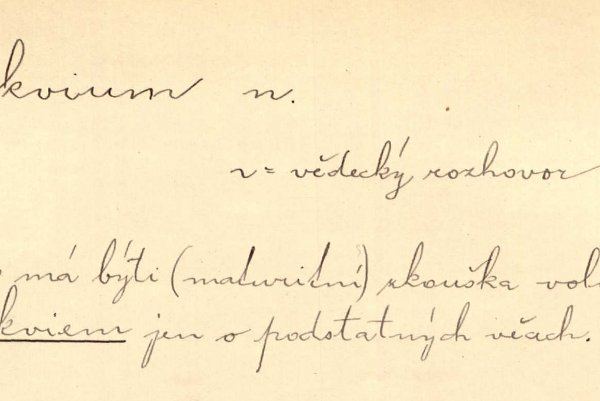 kvium n.
v = vědecký rozhovor
má býti (maturitní) zkouška vol
kviem jen o podstatných věcech.